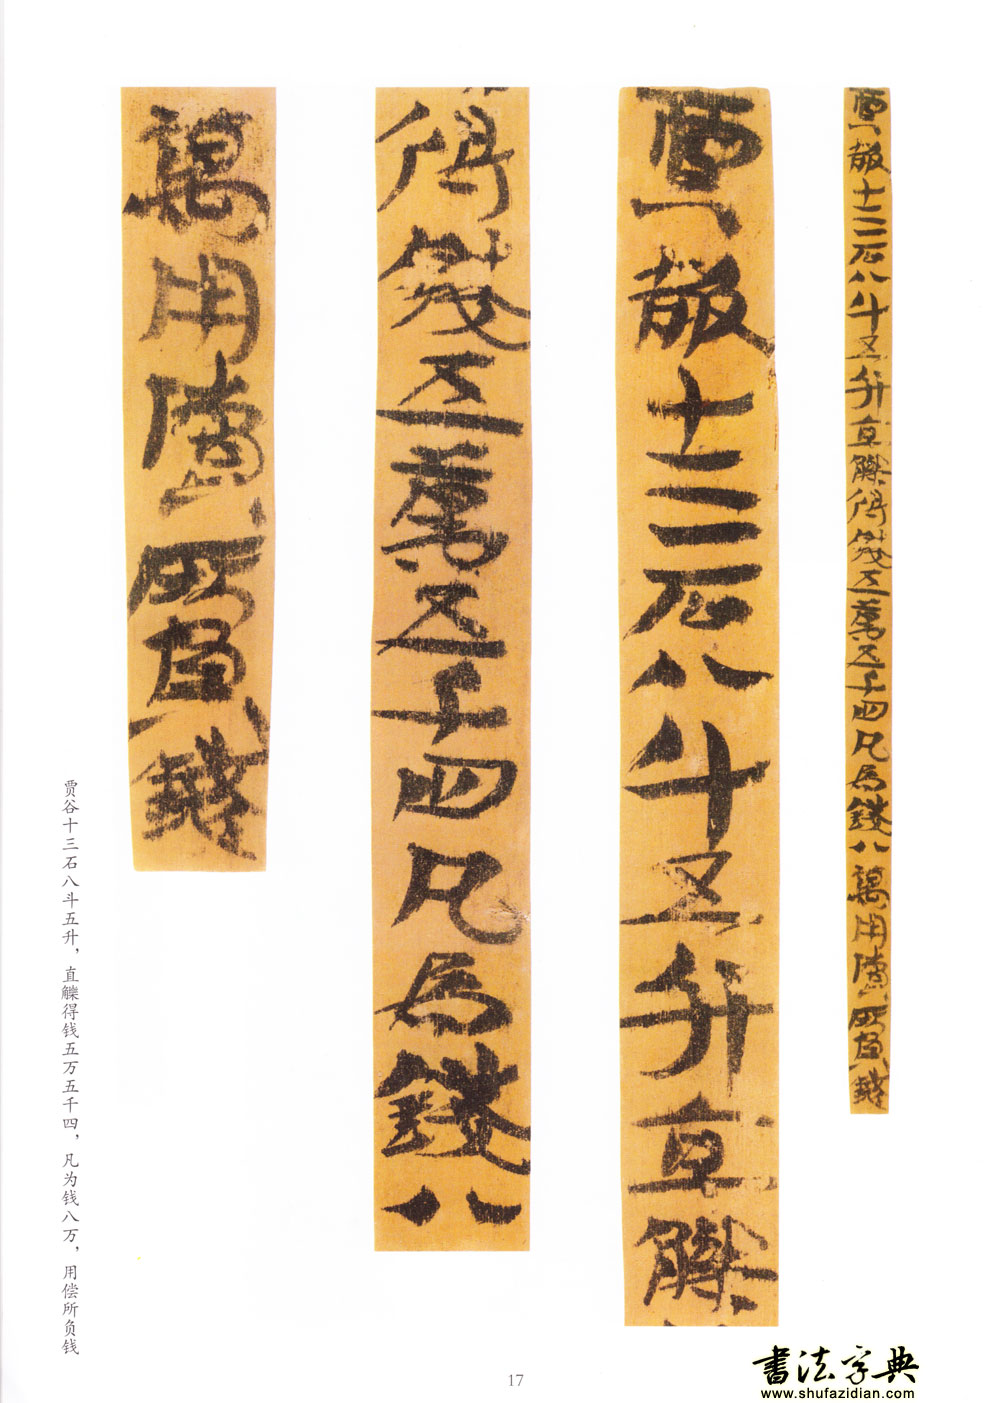 賈穀十三石八斗五升直觻得錢五萬五千四凡為錢八萬用償所負錢
賈穀十三石八斗五升直觻
得錢五萬五千四凡為錢八
萬用償所負錢
贾谷十三石八斗五升，直觻得钱五万五千四，凡为钱八万，用偿所负钱
17
書法字典
www.shufazidian.com